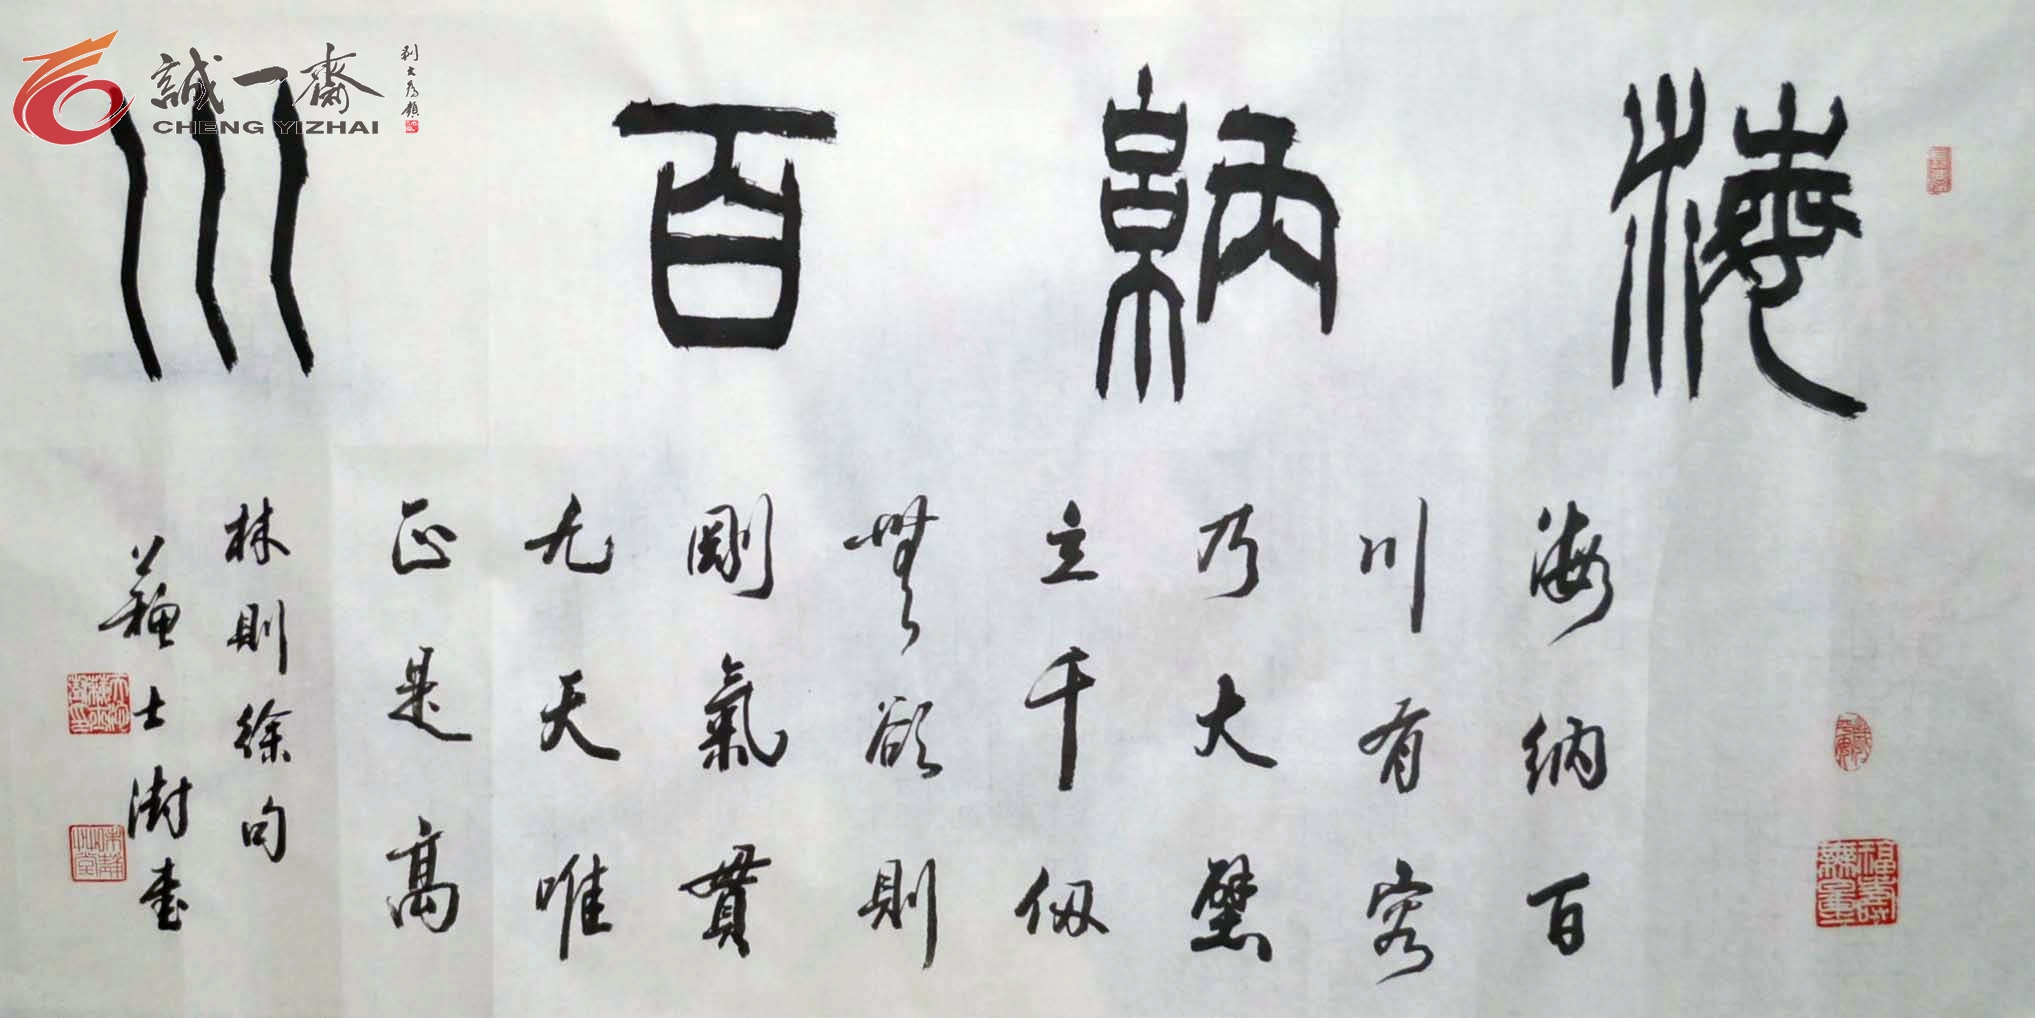 海納百川
海納百
川有容
乃大壁
立千仞
無欲則
剛氣貫
九天唯
正是高
林則徐句
蘇士澍書
福壽無量
誠一齋
CHENG YIZHAI